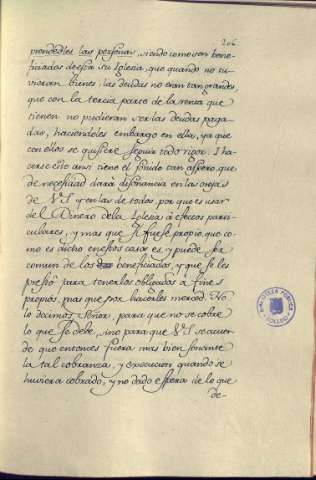 206
prendedles las personas, siendo como son bene-
ficiados de essa su Iglesia, que quando no tu-
vieran bienes las deudas no eran tan grandes,
que con la tercia parte de la renta que
tienen no pudieran ser las deudas paga-
das, haciendoles embargo en ella, ya que
con ellos se quisiere seguir todo rigor. I ha-
cerse esto ansi tiene el sonido tan aspero que
de necesidad dará disonancia en las orejas
de V.S. y en las de todos, por que es usar
del Dinero de la Iglesia á efectos parti-
culares, y mas que si fuese propio, que co-
mo es dicho en estos casos es, y puede ser
comun de los beneficiados, y que se les
prestó para tenerlos obligados a fines
propios, mas que por hacerles merced. No
lo decimos Señor, para que no se cobre
lo que se debe, sino para que V.S. se acuer-
de que entonces fuera mas bien sonante
la tal cobranza, y execucion quando se
huviera cobrado, y no dado espera de lo que
de-
BIBLIOTECA PUBLICA
TOLEDO